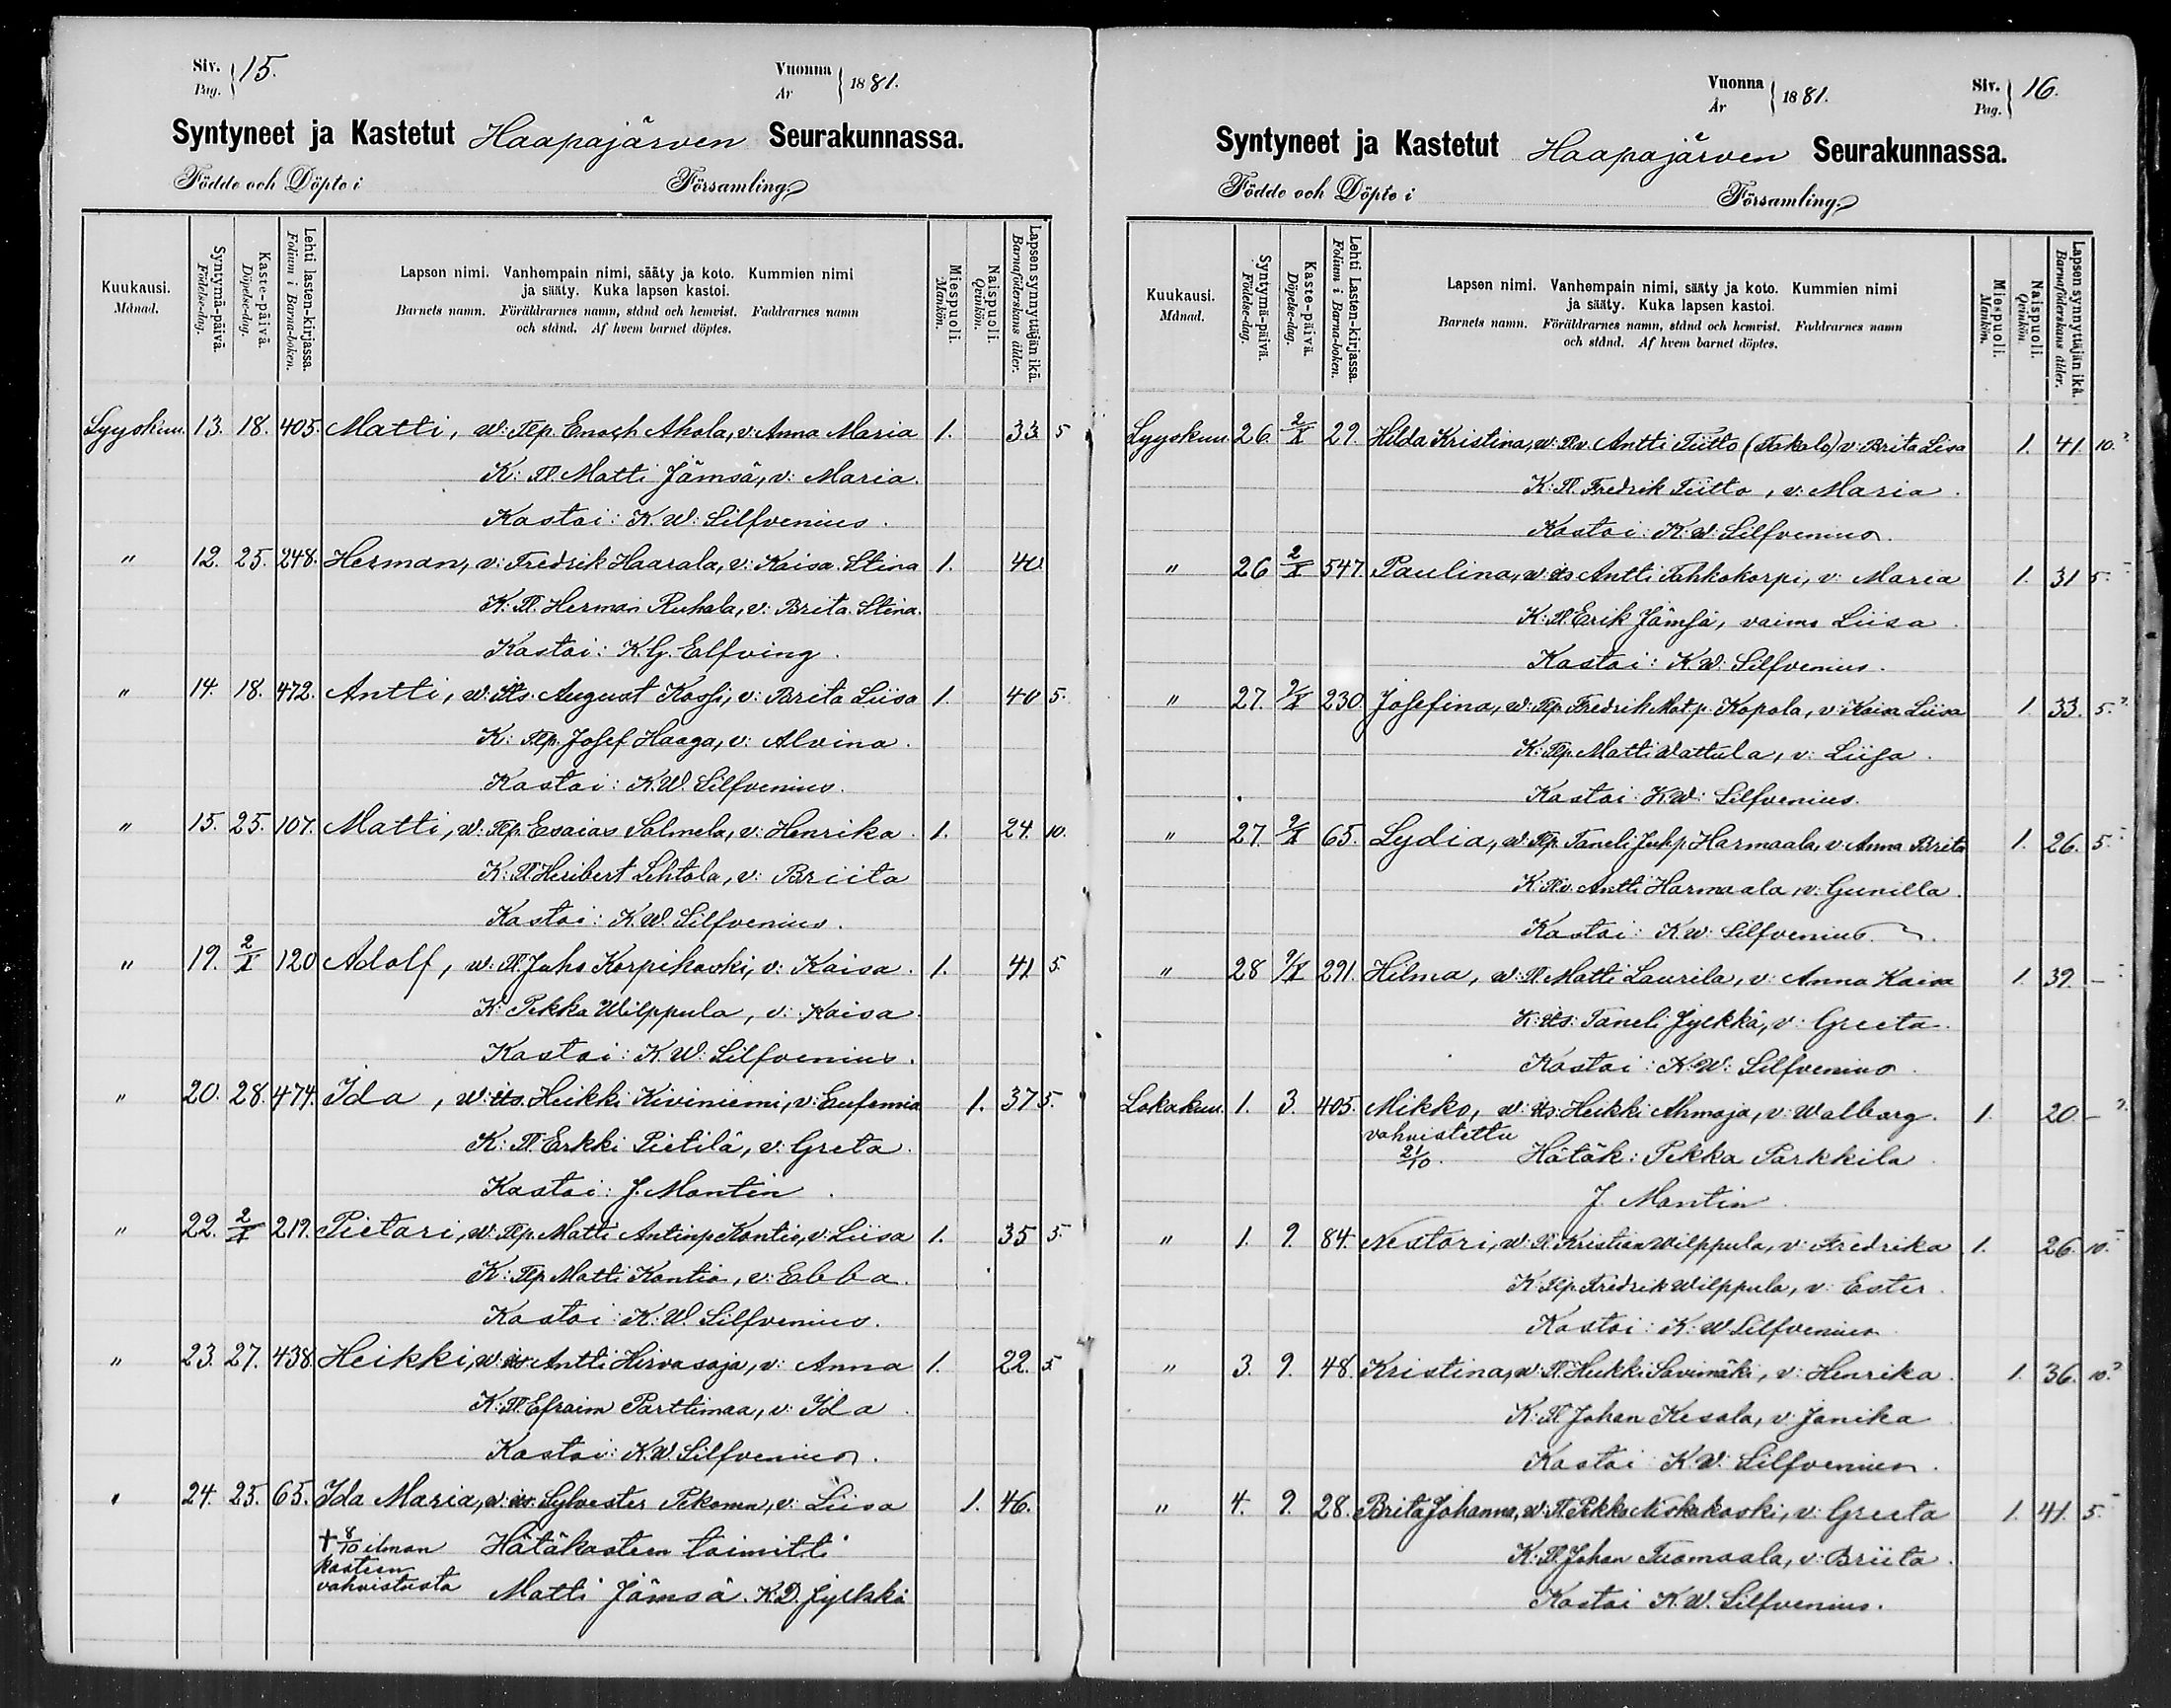 Siv. Pag. 15.
Vuonna År 1881.
Syntyneet ja Kastetut Haapajärven Seurakunnassa.
Födde och Döpte i Församling.
Kuukausi. Månad.
Syntymä-päivä. Födelse-dag.
Kaste-päivä. Döpelse-dag.
Lehti lasten-kirjassa. Folium i Barna-boken.
Lapsen nimi. Vanhempain nimi, sääty ja koto. Kummien nimi
ja sääty. Kuka lapsen kastoi.
Barnets namn. Föräldrarnes namn, stånd och hemvist. Faddrarnes namn
och stånd. Af hvem barnet döptes.
Miespuoli. Mankön.
Naispuoli. Qvinkön.
Lapsen synnyttäjän ikä. Barnaföderskans ålder.
Syyskuu. 13. 18. 405. Matti, w: Tlp. Enoch Ahola, v: Anna Maria 1. 33 5
K: Tl. Matti Jämsä, v: Maria.
Kastoi: K. W. Silfvenius.
" 12. 25. 248. Herman, v: Fredrik Haarala, v: Kaisa Stina 1. 40
K: Tl. Herman Ruhala, v: Brita Stina.
Kastoi: K.G. Elfving.
" 14. 18. 472. Antti, w: its. August Kossi, v: Brita Liisa 1. 40 5.
K: Tlp. Josef Haaga, v: Alvina.
Kastoi: K.W. Silfvenius.
" 15. 25. 107. Matti, w: Tlp. Esaias Salmela, v: Henrika. 1. 24. 10.
K: Tl Heribert Lehtola, v: Briita
Kastoi: K.W. Silfvenius.
" 19. 2/X 120 Adolf, w: Tl. Juho Korpikoski, v: Kaisa. 1. 41 5.
K: Pekka Wilppula, v: Kaisa
Kastoi: K.W. Silfvenius.
" 20. 28. 474. Ida, w: its. Heikki Kiviniemi, v: Eufemia 1. 37 5.
K: Tl Erkki Pietilä, v: Greta.
Kastoi: J. Montin.
" 22. 2/X 219. Pietari, w: Tlp. Matti Antinp Kontio, v: Liisa 1. 35 5.
K: Tlp Matti Kontio, v: Ebba.
Kastoi: K.W. Silfvenius.
" 23. 27. 438. Heikki, w: its Antti Hirvasoja, v: Anna 1. 22. 5
K: Tl. Efraim Parttimaa, v: Ida.
Kastoi: K.W. Silfvenius.
" 24. 25. 65. Ida Maria, w: its. Sylvester Pekoma, v: Liisa 1. 46.
† 8/10 ilman Hätäkasteen toimitti
kasteen
vahvistusta Matti Jämsä. K.D. Jylkkä
Vuonna År 1881.
Siv. Pag. 16.
Syntyneet ja Kastetut Haapajärven Seurakunnassa.
Födde och Döpte i Församling.
Kuukausi. Månad.
Syntymä-päivä. Födelse-dag.
Kaste-päivä. Döpelse-dag.
Lehti Lasten-kirjassa. Folium i Barna-boken.
Lapsen nimi. Vanhempain nimi, sääty ja koto. Kummien nimi
ja sääty. Kuka lapsen kastoi.
Barnets namn. Föräldrarnes namn, stånd och hemvist. Faddrarnes namn
och stånd. Af hvem barnet döptes.
Miespuoli. Mankön.
Naispuoli. Qvinkön.
Lapsen synnyttäjän ikä. Barnaföderskans ålder.
Syyskuu 26. 2/X 29 Hilda Kristina, w: Tlv. Antti Tiitto (Takalo) v: Brita Lisa 1. 41. 10.
K: Tl. Fredrik Tiitto, v: Maria.
Kastoi: K.W. Silfvenius.
" 26 2/X 547. Paulina, w: its Antti Tahkokorpi, v: Maria 1. 31 5.
K: Tl. Erik Jämsä, vaimo Liisa.
Kastoi: K.W. Silfvenius.
" 27. 2/X 230 Josefina, w: Tlp. Fredrik Mat.p. Kopola, v: Kaisa Liisa 1. 33. 5.
K: Tlp. Matti Wattula, v: Liisa.
Kastoi: K.W. Silfvenius.
" 27. 2/X 65. Lydia, w: Tlp. Taneli Juhp Harmaala, v: Anna Brita 1. 26. 5.
K: Tlv. Antti Harmaala, v: Gunilla.
Kastoi: K.W. Silfvenius.
" 28 2/X 291. Hilma, w: Tl. Matti Laurila, v: Anna Kaisa 1. 39. –
K: its: Taneli Jylkkä, v: Greeta.
Kastoi: K.W. Silfvenius.
Lokakuu. 1. 3. 405. Mikko, w: its: Heikki Ahmaja, v: Walborg. 1. 20. –
vahvistettu
21/10. Hätäk: Pekka Parkkila.
J. Montin
" 1. 9. 84. Nestori, w: Tl. Kristian Wilppula, v: Fredrika 1. 26. 10.
K: Tlp Fredrik Wilppula, v: Ester.
Kastoi: K.W Silfvenius
" 3. 9. 48. Kristina, w: Tl. Heikki Savimäki, v: Henrika. 1. 36. 10.
K: Tl Johan Kesola, v: Janika
Kastoi K.W. Silfvenius.
" 4. 9. 28. Brita Johanna, w: Tl. Pekka Niskakoski, v: Greeta 1. 41. 5.
K: Tl. Johan Tuomaala, v: Briita.
Kastoi K.W. Silfvenius.